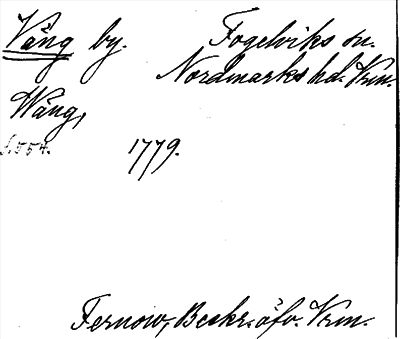 Vång by. Fogelviks sn.
Nordmarks hd. Vrm.
Wång,
s. 554. 1779.
Fernow, Beskr. öfv. Vrm.